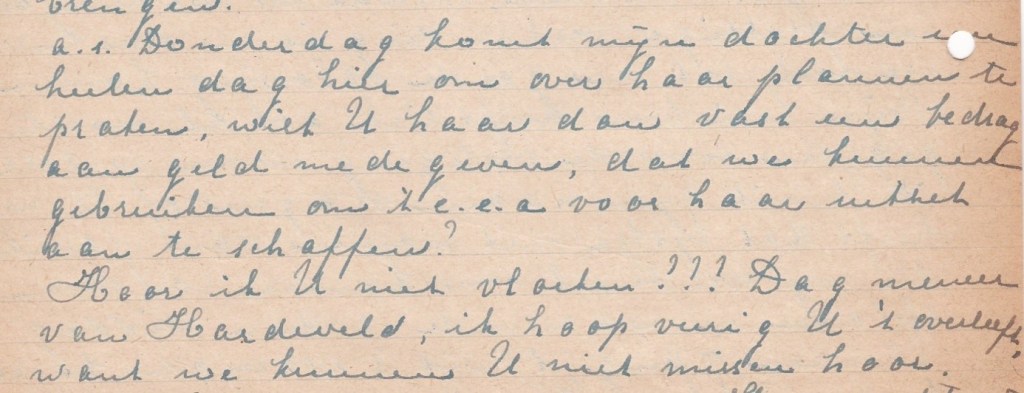 brengen.
a.s. Donderdag komt mijn dochter een
heelen dag hier om over haar plannen te
praten, wilt U haar dan vast een bedrag
aan geld mede geven, dat we kunnen
gebruiken om 't e.e.a voor haar uitzet
aan te schaffen?
Hoor ik U niet vloeken!??? Dag meneer
van Hardeveld, ik hoop vurig U 't overleeft,
want we kunnen U niet missen hoor.